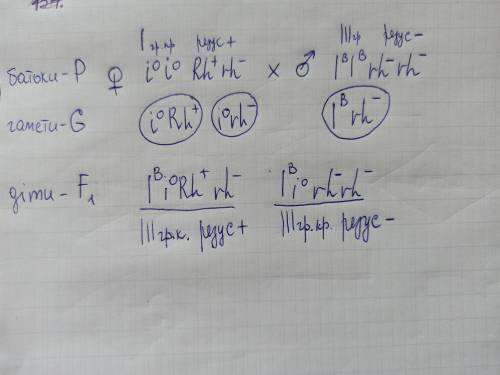 I гр.кр резус+ III гр резус-
батьки-P ♀ i⁰i⁰ Rh⁺rh⁻ x ♂ IᴮIᴮrh⁻rh⁻
гамети-G i⁰Rh⁺ i⁰rh⁻ Iᴮrh⁻
діти-F₁ Iᴮi⁰Rh⁺rh⁻ Iᴮi⁰rh⁻rh⁻
III гр.к. резус+ III гр.кр. резус-